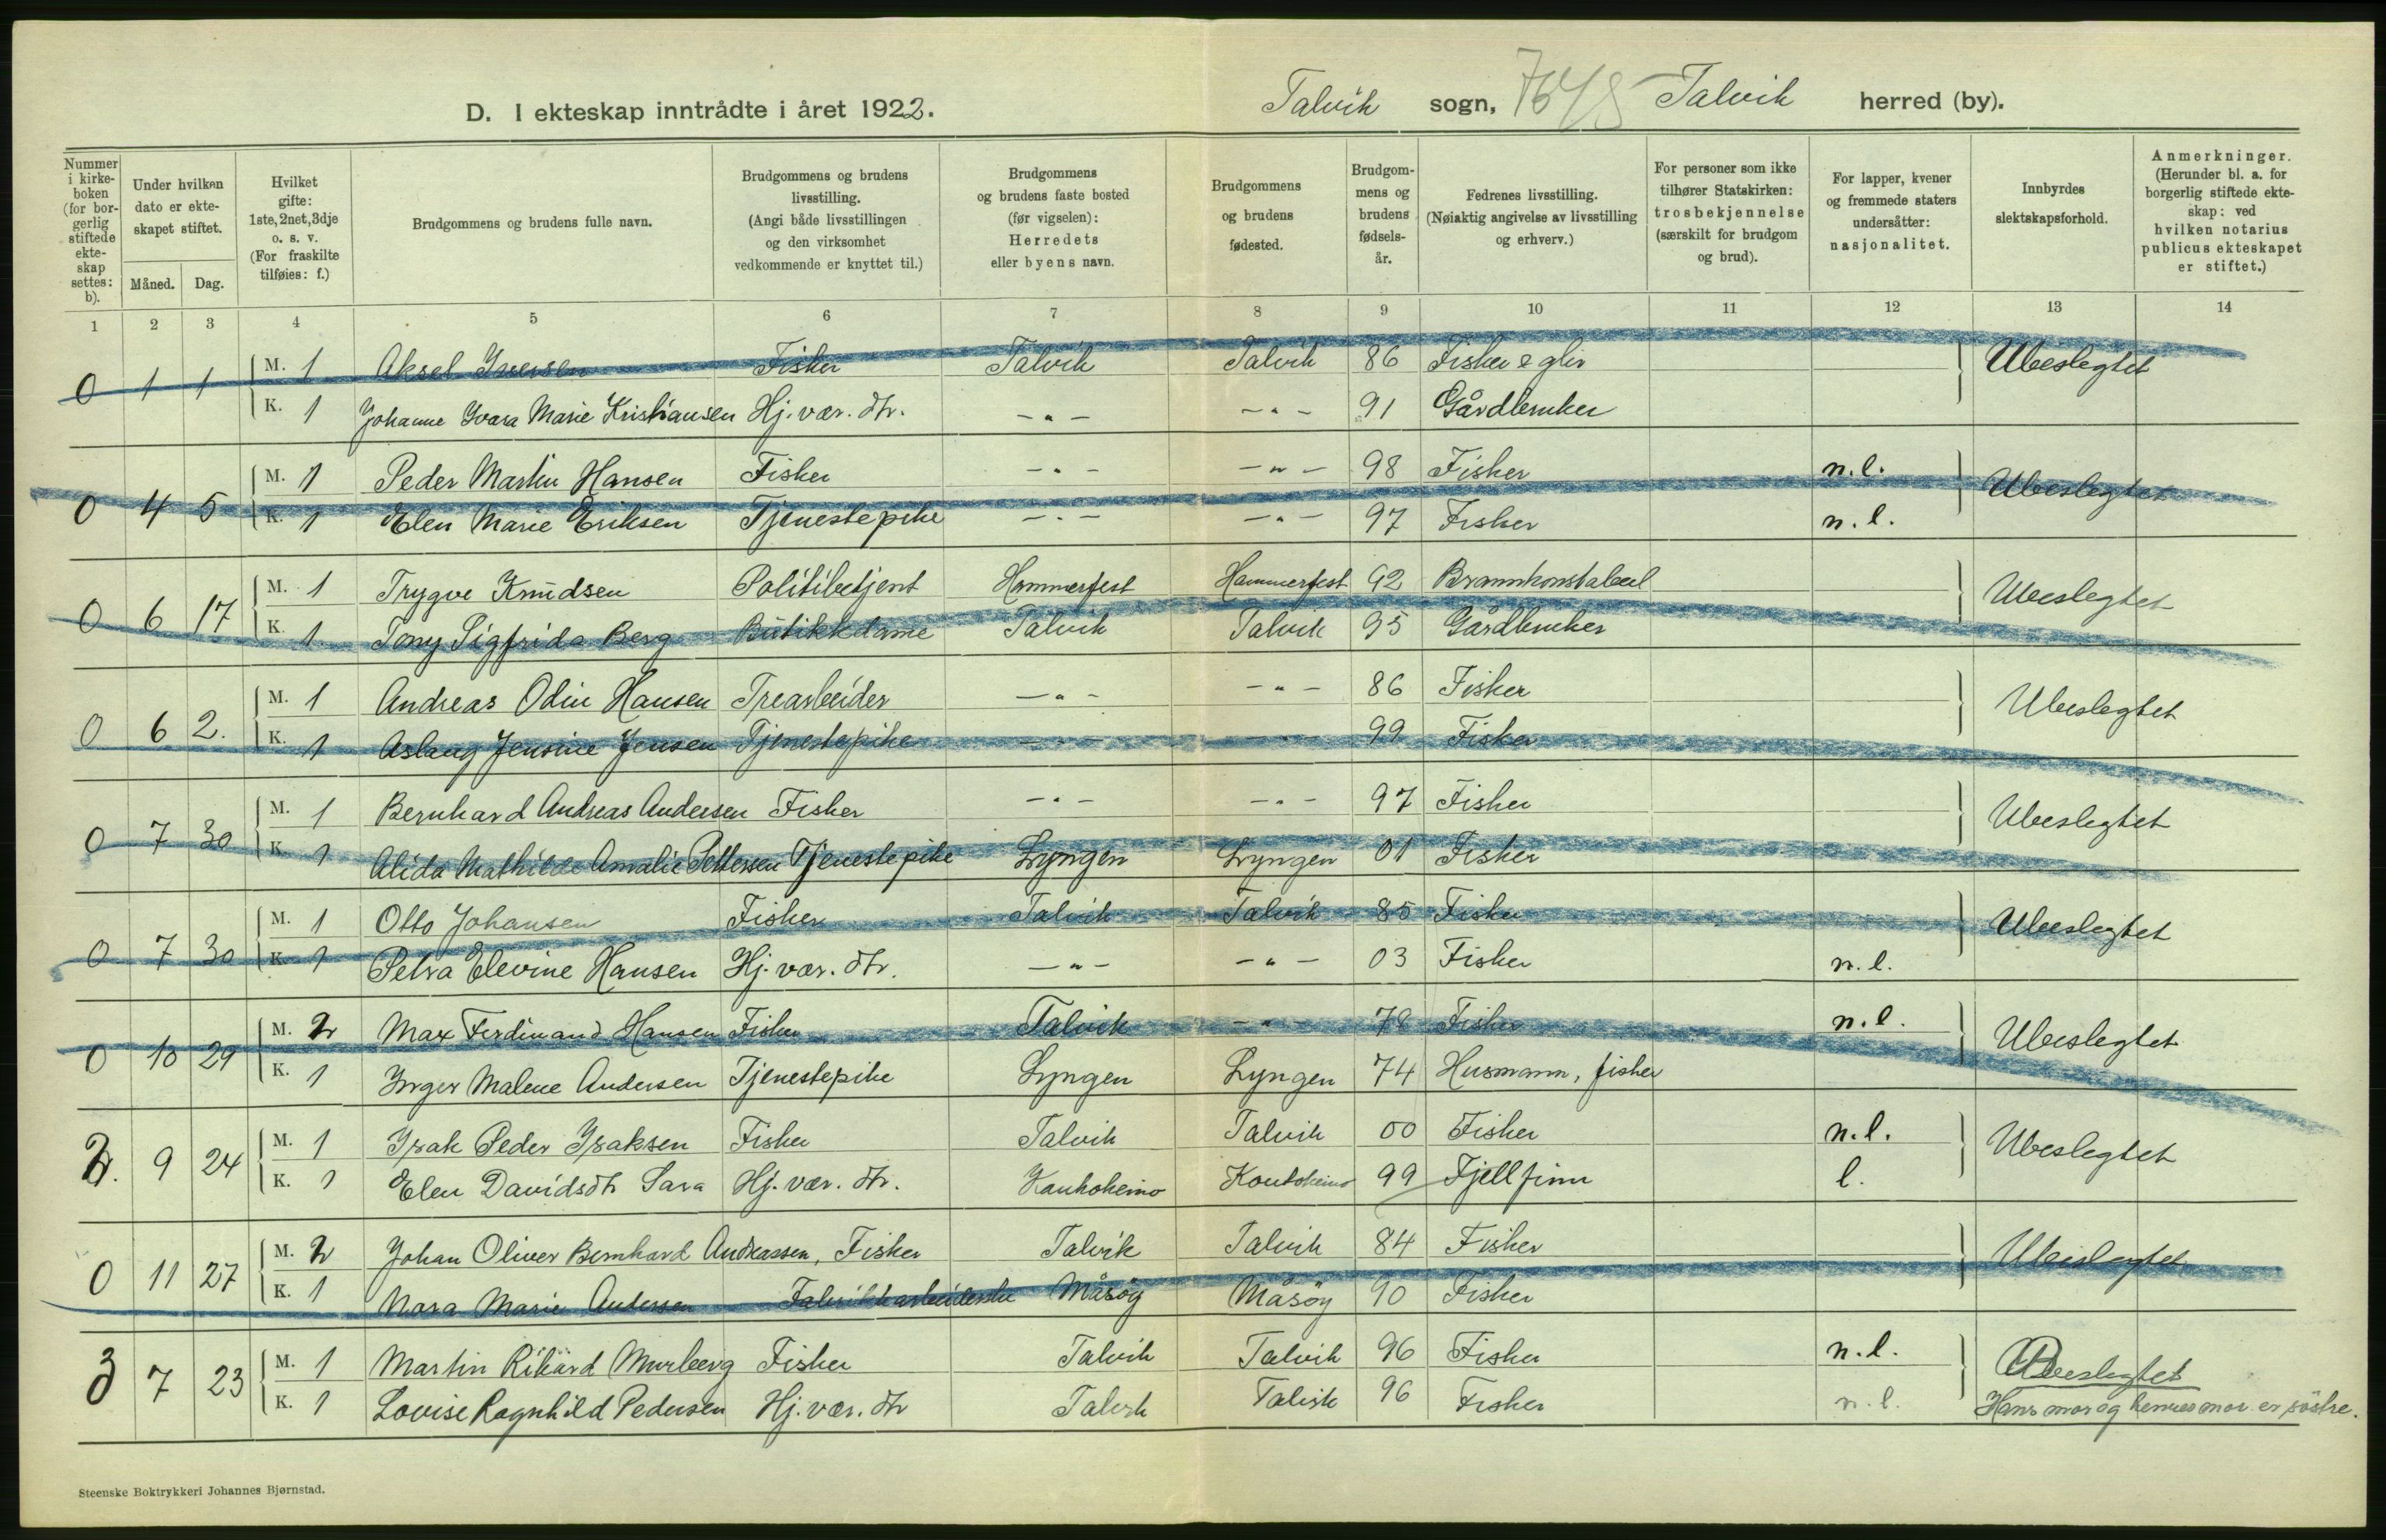 D. I ekteskap inntrådte i året 1922.
Talvik sogn, Talvik herred (by).
Nummer i kirkeboken (for borgerlig stiftede ekteskap settes: b).
Under hvilken dato er ekteskapet stiftet.
Måned. Dag.
Hvilket gifte: 1ste, 2net, 3dje o. s. v. (For fraskilte tilføies: f.)
Brudgommens og brudens fulle navn.
Brudgommens og brudens livsstilling. (Angi både livsstillingen og den virksomhet vedkommende er knyttet til.)
Brudgommens og brudens faste bosted (før vigselen): Herredets eller byens navn.
Brudgommens og brudens fødested.
Brudgommens og brudens fødselsår.
Fedrenes livsstilling. (Nøiaktig angivelse av livsstilling og erhverv.)
For personer som ikke tilhører Statskirken: trosbekjennelse (særskilt for brudgom og brud).
For lapper, kvener og fremmede staters undersåtter: nasjonalitet.
Innbyrdes slektskapsforhold.
Anmerkninger. (Herunder bl. a. for borgerlig stiftede ekteskap: ved hvilken notarius publicus ekteskapet er stiftet.)
1 2 3 4 5 6 7 8 9 10 11 12 13 14
0 1 1 M. 1 Aksel Iversen Fisker Talvik Talvik 86 Fisker Ubeslegtet
K. 1 Johanne Marie Kristiansen Hj. vær. dtr. -"- -"- 91 Gårdbruker
0 4 5 M. 1 Peder Martin Hansen Fisker -"- -"- 98 Fisker n.l. Ubeslegtet
K. 1 Elen Marie Eriksen Tjenestepike -"- -"- 97 Fisker n.l.
0 6 17 M. 1 Trygve Knudsen Politibetjent Hammerfest Hammerfest 92 Brannkonstabel Ubeslegtet
K. 1 Tony Sigfrida Berg Butikkdame Talvik Talvik 95 Gårdbruker
0 6 2. M. 1 Andreas Odin Hansen Trearbeider -"- -"- 86 Fisker Ubeslegtet
K. 1 Aslaug Jensine Jensen Tjenestepike -"- -"- 99 Fisker
0 7 30 M. 1 Bernhard Andreas Andersen Fisker -"- -"- 97 Fisker Ubeslegtet
K. 1 Alida Mathilde Amalie Pettersen Tjenestepike Lyngen Lyngen 01 Fisker
0 7 30 M. 1 Otto Johansen Fisker Talvik Talvik 85 Fisker Ubeslegtet
K. 1 Petra Elevine Hansen Hj. vær. dtr. -"- -"- 03 Fisker n.l.
0 10 29 M. 2 Max Ferdinand Hansen Fisker Talvik -"- Fisker n.l. Ubeslegtet
K. 1 Inger Malene Andersen Tjenestepike Lyngen Lyngen 74 Husmann, fisker
2. 9 24 M. 1 Isak Peder Isaksen Fisker Talvik Talvik 00 Fisker n.l. Ubeslegtet
K. 1 Elen Davidsdtr Sara Hj. vær. dtr. Kautokeino Koutokeino 99 Fjellfinn l.
0 11 27 M. 2 Johan Oliver Bernhard Andreassen, Fisker Talvik Talvik 84 Fisker Ubeslegtet
K. 1 Nora Marie Andersen Fabrikkarbeiderske Måsøy Måsøy 90 Fisker
3 7 23 M. 1 Martin Rikard Murberg Fisker Talvik Talvik 96 Fisker n.l. Beslegtet
K. 1 Lovise Ragnhild Pedersen Hj. vær. dtr Talvik Talvik 96 Fisker n.l. Hans mor og hennes mor er søstre.
Steenske Boktrykkeri Johannes Bjørnstad.